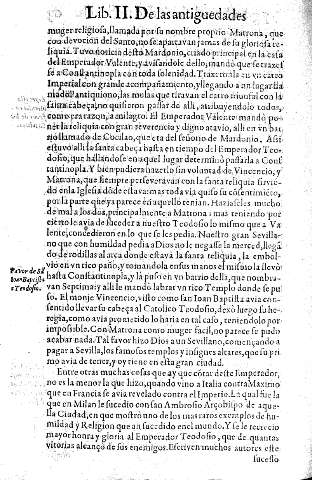 Lib. II. De las antiguedades
muger religiosa, llamada por su nombre proprio Matrona, que
con devocion del Santo, no se apartava jamas de su gloriosa re-
liquia. Tuvo noticia desto Mardonio, criado principal en la casa
del Emperador Valente, y avisandole dello, mandò que se traxes
se a Constantinopla con toda solenidad. Traxeronla en vn carro
Imperial con grande acompañamiento, y llegando a un lugar lla
mado Pantiquino, las mulas que tiravan el carro triunfal con la
santa cabeça, no quisieron passar de alli, atribuyendolo todos,
como era razon, a milagro. El Emperador Valente mandò po-
ner la reliquia con gran reverencia y digno atavio, alli en vn bar
rio llamado de Cusilao, que era del señorio de Mardonio. Assi
estuvo alli la santa cabeça hasta en tiempo del Emperador Teo-
dosio, que hallandose en aquel lugar determinò passarla a Cons
tantinopla. Y bien pudiera hazerlo sin voluntad de Vincencio, y
Matrona, que siempre perseveravan con la santa reliquia sirvié
do en la Iglesia dõde estava: mas toda via quiso su cõsentimiéto,
por la parte que ya parece en aquello tenian. Haziaseles mucho
de mal a los dos, principalmente a Matrona: mas teniendo por
cierto le avia de suceder a nuestro Teodosio lo mismo que a Va
lente, concedieron en lo que se les pedia. Nuestro gran Sevilla-
no que con humildad pedia a Dios no le negasse la merced, llegã
do de rodillas al arca donde estava la santa reliquia, la embol-
viò en vn rico paño, y tomandola con sus manos el mismo la llevò
hasta Constantinopla, y la puso en vn barrio della, que nombra-
van Septima: y alli le mandò labrar vn rico Templo donde se pu-
so. El monje Vincencio, visto como san Ioan Baptista avia con-
sentido llevar su cabeça al Catolico Teodosio, dexò luego su he-
regia, como avia prometido lo haria en tal caso, teniendolo por
impossible. Con Matrona como muger facil, no parece se pudo
acabar nada. Tal favor hizo Dios a vn Sevillano, começando a
pagar a Sevilla, los famosos templos y insignes altares, que su pri
mo avia de tener, y oy tiene en esta gran ciudad.
Entre otras muchas cosas que ay que cõtar deste Emperador,
no es la menor la que hizo, quando vino a Italia contra Maximo
que en Francia se avia revelado contra el Imperio. La qual fue la
que en Milan le sucedio con san Ambrosio Arçobispo de aque-
lla Ciudad, en que mostrò uno de los mas raros exemplos de hu-
mildad y Religion que an sucedido en el mundo. Y se le recrecio
mayor honra y gloria al Emperador Teodosio, que de quantas
vitorias alcançò de sus enemigos. Escriven muchos autores este
sucesso
Favor de Sã
Ioan Baptista
a Teodosio.